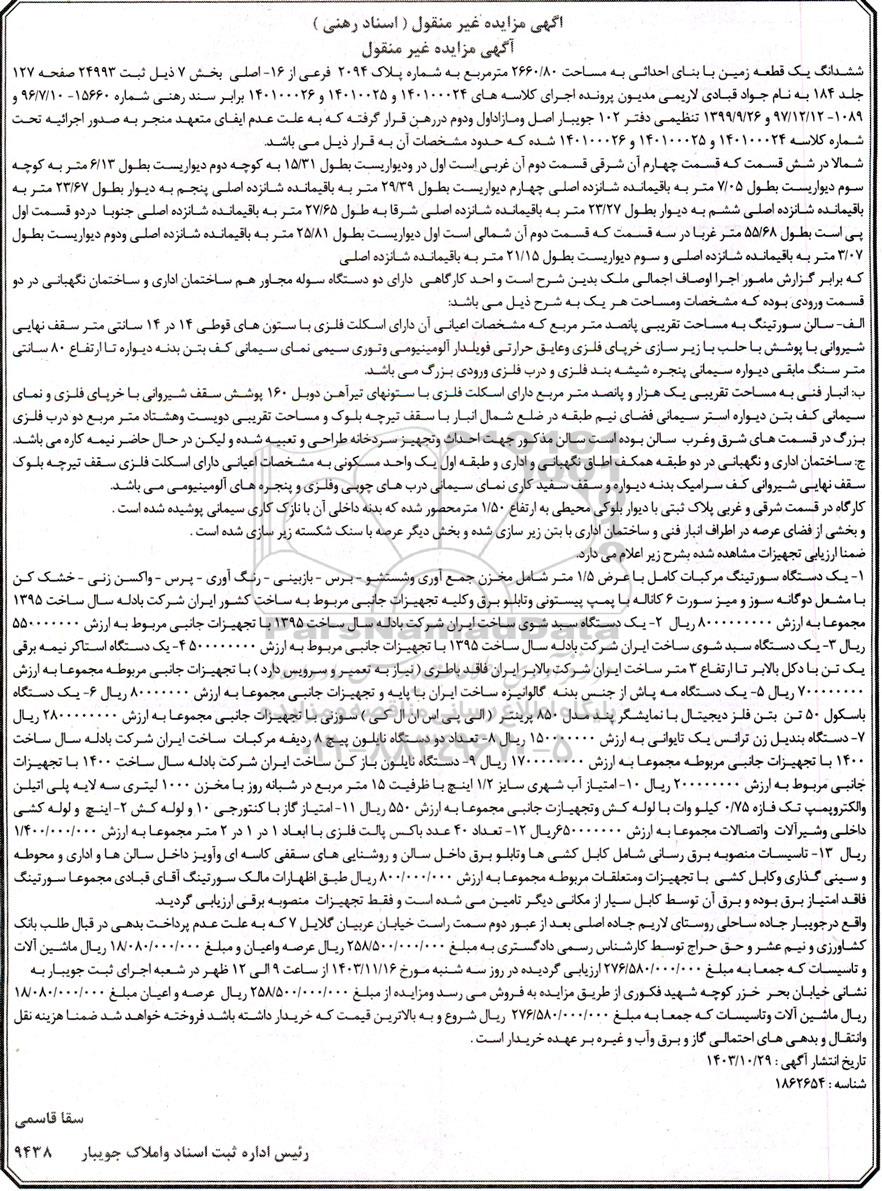 اگهی مزایده غیر منقول ( اسناد رهنی )
آگهی مزایده غیر منقول
ششدانگ یک قطعه زمین با بنای احداثی به مساحت ۲۶۶۰/۸۰ مترمربع به شماره پلاک ۲۰۹۴ فرعی از ۱۶- اصلی بخش ۷ ذیل ثبت ۲۴۹۹۳ صفحه ۱۲۷
جلد ۱۸۴ به نام جواد قبادی لاریمی مدیون پرونده اجرای کلاسه های ۱۴۰۱۰۰۰۲۴ و ۱۴۰۱۰۰۲۵ و ۱۴۰۱۰۰۰۲۶ برابر سند رهنی شماره ۱۵۶۶۰- ۹۶/۷/۱۰ و
۱۰۸۹- ۹۷/۱۲/۱۲ و ۱۳۹۹/۹/۲۶ تنظیمی دفتر ۱۰۲ جویبار اصل ومازاداول ودوم دررهن قرار گرفته که به علت عدم ایفای متعهد منجر به صدور اجرائیه تحت
شماره کلاسه ۱۴۰۱۰۰۰۲۴ و ۱۴۰۱۰۰۰۲۵ و ۱۴۰۱۰۰۰۲۶ شده که حدود مشخصات آن به قرار ذیل می باشد.
شمالا در شش قسمت که قسمت چهارم آن شرقی قسمت دوم آن غربی است اول در ودیواریست بطول ۱۵/۳۱ به کوچه دوم دیواریست بطول ۶/۱۳ متر به کوچه
سوم دیواریست بطول ۷/۰۵ متر به باقیمانده شانزده اصلی چهارم دیواریست بطول ۲۹/۳۹ متر به باقیمانده شانزده اصلی پنجم به دیوار بطول ۲۳/۶۷ متر به
باقیمانده شانزده اصلی ششم به دیوار بطول ۲۳/۲۷ متر به باقیمانده شانزده اصلی شرقا به طول ۲۷/۶۵ متر به باقیمانده شانزده اصلی جنوبا دردو قسمت اول
پی است بطول ۵۵/۶۸ متر غربا در سه قسمت که قسمت دوم آن شمالی است اول دیواریست بطول ۲۵/۸۱ متر به باقیمانده شانزده اصلی ودوم دیواریست بطول
۳/۰۷ متر به باقیمانده شانزده اصلی و سوم دیواریست بطول ۲۱/۱۵ متر به باقیمانده شانزده اصلی
که برابر گزارش مامور اجرا اوصاف اجمالی ملک بدین شرح است و احد کارگاهی دارای دو دستگاه سوله مجاور هم ساختمان اداری و ساختمان نگهبانی در دو
قسمت ورودی بوده که مشخصات ومساحت هر یک به شرح ذیل می باشد:
الف- سالن سورتینگ به مساحت تقریبی پانصد متر مربع که مشخصات اعیانی آن دارای اسکلت فلزی با ستون های قوطی ۱۴ در ۱۴ سانتی متر سقف نهایی
شیروانی با پوشش با حلب با زیر سازی خرپای فلزی وعایق حرارتی فویلدار آلومینیومی وتوری سیمی نمای سیمانی کف بتن بدنه دیواره تا ارتفاع ۸۰ سانتی
متر سنگ مابقی دیواره سیمانی پنجره شیشه بند فلزی و درب فلزی ورودی بزرگ می باشد.
ب: انبار فنی به مساحت تقریبی یک هزار و پانصد متر مربع دارای اسکلت فلزی با ستونهای تیرآهن دوبل ۱۶۰ پوشش سقف شیروانی با خرپای فلزی و نمای
سیمانی کف بتن دیواره استر سیمانی فضای نیم طبقه در ضلع شمال انبار با سقف تیرچه بلوک و مساحت تقریبی دویست وهشتاد متر مربع دو درب فلزی
بزرگ در قسمت های شرق وغرب سالن بوده است سالن مذکور جهت احداث وتجهیز سردخانه طراحی و تعبیه شده و لیکن در حال حاضر نیمه کاره می باشد.
ج: ساختمان اداری و نگهبانی در دو طبقه همکف اطاق نگهبانی و اداری و طبقه اول یک واحد مسکونی به مشخصات اعیانی دارای اسکلت فلزی سقف تیرچه بلوک
سقف نهایی شیروانی کف سرامیک بدنه دیواره و سقف سفید کاری نمای سیمانی درب های چوبی وفلزی و پنجره های آلومینیومی می باشد.
کارگاه در قسمت شرقی و غربی پلاک ثبتی با دیوار بلوکی محیطی به ارتفاع ۱/۵۰ مترمحصور شده که بدنه داخلی آن با نازک کاری سیمانی پوشیده شده است .
و بخشی از فضای عرصه در اطراف انبار فنی و ساختمان اداری با بتن زیر سازی شده و بخش دیگر عرصه با سنک شکسته زیر سازی شده است .
ضمنا ارزیابی تجهیزات مشاهده شده بشرح زیر اعلام می دارد.
۱- یک دستگاه سورتینگ مرکبات کامل با عرض ۱/۵ متر شامل مخزن جمع آوری وشستشو - برس - بازبینی - رنگ آوری - پرس - واکسن زنی - خشک کن
با مشعل دوگانه سوز و میز سورت ۶ کاناله با پمپ پیستونی وتابلو برق وکلیه تجهیزات جانبی مربوط به ساخت کشور ایران شرکت بادله سال ساخت ۱۳۹۵
مجموعا به ارزش ۸۰۰۰۰۰۰۰۰۰ ریال ۲- یک دستگاه سبد شوی ساخت ایران شرکت بادله سال ساخت ۱۳۹۵ با تجهیزات جانبی مربوط به ارزش ۵۵۰۰۰۰۰۰۰
ریال ۳- یک دستگاه سبد شوی ساخت ایران شرکت بادله سال ساخت ۱۳۹۵ با تجهیزات جانبی مربوط به ارزش ۵۰۰۰۰۰۰۰۰ ۴- یک دستگاه استاکر نیمه برقی
یک تن با دکل بالابر تا ارتفاع ۳ متر ساخت ایران شرکت بالابر ایران فاقد باطری ( نیاز به تعمیر و سرویس دارد ) با تجهیزات جانبی مربوطه مجموعا به ارزش
۷۰۰۰۰۰۰۰۰ ریال ۵- یک دستگاه مه پاش از جنس بدنه گالوانیزه ساخت ایران با پایه و تجهیزات جانبی مجموعا به ارزش ۸۰۰۰۰۰۰۰ ریال ۶- یک دستگاه
باسکول ۵۰ تن بتن فلز دیجیتال با نمایشگر پند مدل ۸۵۰ پرینتر ( الی پی اس ان ال کی ) سوزنی با تجهیزات جانبی مجموعا به ارزش ۲۸۰۰۰۰۰۰۰۰ ریال
۷- دستگاه بندیل زن ترانس پک تایوانی به ارزش ۱۵۰۰۰۰۰۰۰ ریال ۸- تعداد دو دستگاه نایلون پیچ ۸ ردیفه مرکبات ساخت ایران شرکت بادله سال ساخت
۱۴۰۰ با تجهیزات جانبی مربوطه مجموعا به ارزش ۱۷۰۰۰۰۰۰۰۰ ریال ۹- دستگاه نایلون باز کن ساخت ایران شرکت بادله سال ساخت ۱۴۰۰ با تجهیزات
جانبی مربوط به ارزش ۲۰۰۰۰۰۰۰۰ ریال ۱۰- امتیاز آب شهری سایز ۱/۲ اینچ با ظرفیت ۱۵ متر مربع در شبانه روز با مخزن ۱۰۰۰ لیتری سه لایه پلی اتیلن
والکتروپمپ تک فازه ۰/۷۵ کیلو وات با لوله کش وتجهیزات جانبی مجموعا به ارزش ۵۵۰ ریال ۱۱- امتیاز گاز با کنتورجی ۱۰ و لوله کش ۲- اینچ و لوله کشی
داخلی وشیرآلات واتصالات مجموعا به ارزش ۶۵۰۰۰۰۰۰۰ریال ۱۲- تعداد ۴۰ عدد باکس پالت فلزی با ابعاد ۱ در ۱ در ۲ متر مجموعا به ارزش ۱/۴۰۰/۰۰۰/۰۰۰
ریال ۱۳- تاسیسات منصوبه برق رسانی شامل کابل کشی ها وتابلو برق داخل سالن و روشنایی های سقفی کاسه ای وآویز داخل سالن ها و اداری و محوطه
و سینی گذاری وکابل کشی با تجهیزات ومتعلقات مربوطه مجموعا به ارزش ۸۰۰/۰۰۰/۰۰۰ ریال طبق اظهارات مالک سورتینگ آقای قبادی مجموعا سورتینگ
فاقد امتیاز برق بوده و برق آن توسط کابل سیار از مکانی دیگر تامین می شده است و فقط تجهیزات منصوبه برقی ارزیابی گردید.
واقع درجویبار جاده ساحلی روستای لاریم جاده اصلی بعد از عبور دوم سمت راست خیابان عربیان گلایل ۷ که به علت عدم پرداخت بدهی در قبال طلب بانک
کشاورزی و نیم عشر و حق حراج توسط کارشناس رسمی دادگستری به مبلغ ۲۵۸/۵۰۰/۰۰۰/۰۰۰ ریال عرصه واعیان و مبلغ ۱۸/۰۸۰/۰۰۰/۰۰۰ ریال ماشین آلات
و تاسیسات که جمعا به مبلغ ۲۷۶/۵۸۰/۰۰۰/۰۰۰ ارزیابی گردیده در روز سه شنبه مورخ ۱۴۰۳/۱۱/۱۶ از ساعت ۹ الی ۱۲ ظهر در شعبه اجرای ثبت جویبار به
نشانی خیابان بحر خزر کوچه شهید فکوری از طریق مزایده به فروش می رسد ومزایده از مبلغ ۲۵۸/۵۰۰/۰۰۰/۰۰۰ ریال عرصه و اعیان مبلغ ۱۸/۰۸۰/۰۰۰/۰۰۰
ریال ماشین آلات وتاسیسات که جمعا به مبلغ ۲۷۶/۵۸۰/۰۰۰/۰۰۰ ریال شروع و به بالاترین قیمت که خریدار داشته باشد فروخته خواهد شد ضمنا هزینه نقل
وانتقال و بدهی های احتمالی گاز و برق وآب و غیره بر عهده خریدار است .
تاریخ انتشار آگهی : ۱۴۰۳/۱۰/۲۹
شناسه : ۱۸۶۲۶۵۴
سقا قاسمی
رئیس اداره ثبت اسناد واملاک جویبار ۹۴۳۸
ParsNamadData
۰۲۱-۸۸۳۴۹۶۷۰-۵